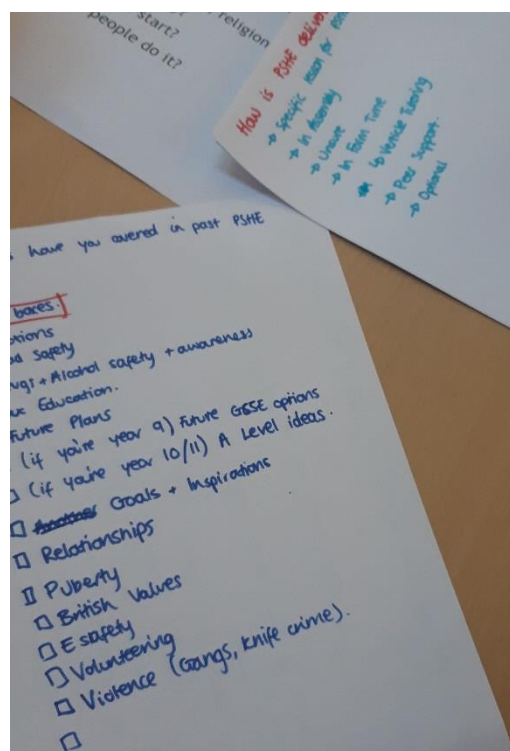 religion
start?
people do it?
How is PSHE
→ Specific lesson for
→ In Assembly
→ Unsure
→ In Form Time
↳ Verticle Tutoring
→ Peer Support.
→ Optional
have you covered in past PSHE
boxes.
Safety
+ Alcohol safety + awareness
Education.
Future Plans
(if you're year 9) Future GCSE options
(if you're year 10/11) A Level ideas.
Goals + Inspirations
Relationships
Puberty
British Values
E safety
Volunteering
Violence (Gangs, knife crime).